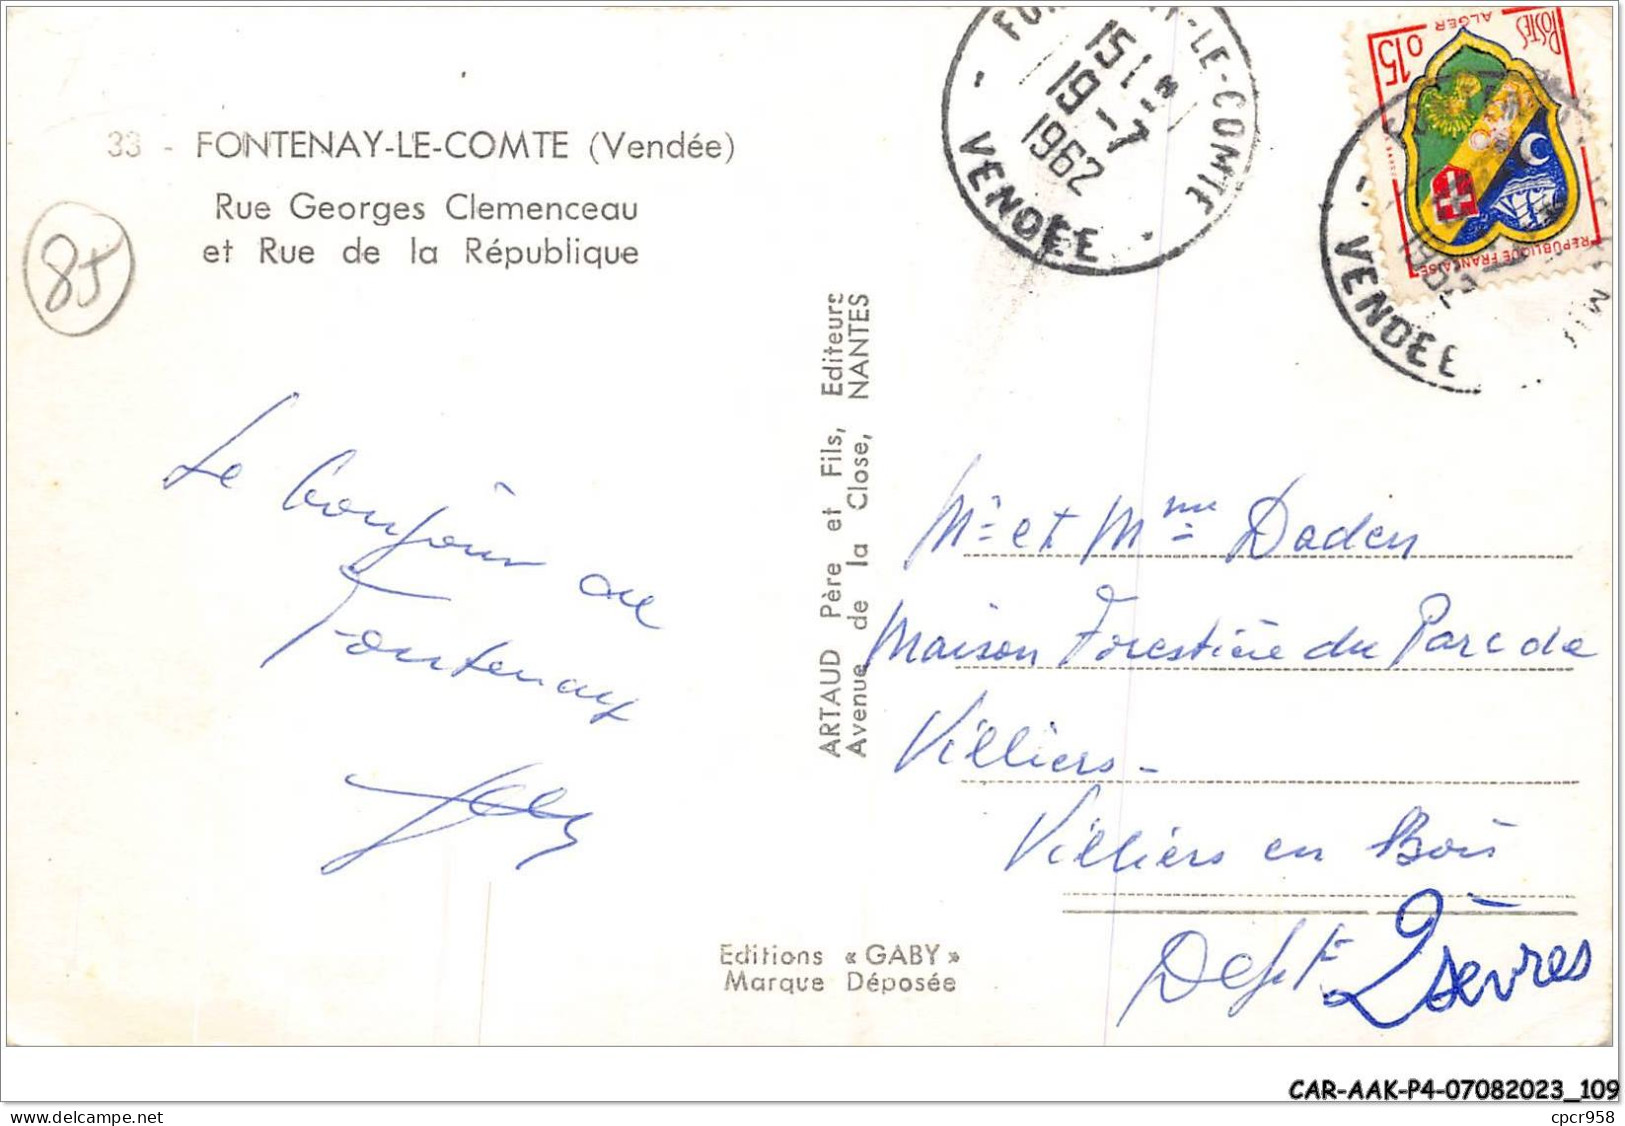 33 - FONTENAY-LE-COMTE (Vendée)
Rue Georges Clemenceau
et Rue de la République
85
Le bonjour de
Fontenay
ARTAUD Père et Fils, Editeurs
Avenue de la Close, NANTES
Editions « GABY »
Marque Déposée
FONTENAY-LE-COMTE
15H
19-7
1962
VENDÉE
POSTES
ALGER
0,15
REPUBLIQUE FRANÇAISE
VENDÉE
Mr et Mme Daden
Maison Forestière du Parc de
Villiers -
Villiers en Bois
Dept 2 Sèvres
CAR-AAK-P4-07082023_109
https://www.delcampe.net
cpcr958